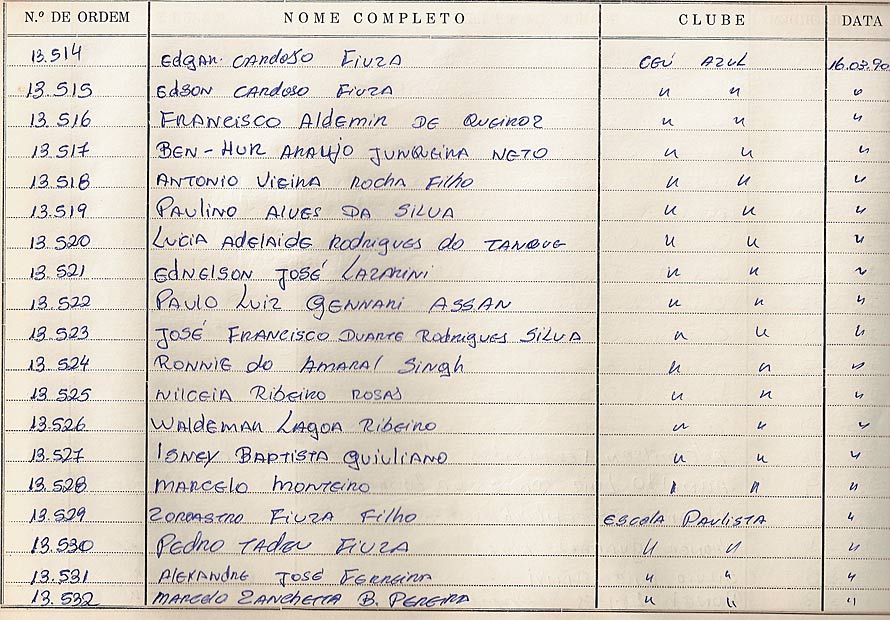 N.º DE ORDEM NOME COMPLETO CLUBE DATA
13.514 Edgar Cardoso Fiuza CEÚ AZUL 16.03.90
13.515 Edson Cardoso Fiuza " " "
13.516 Francisco Aldemir de Queiroz " " "
13.517 Ben-Hur Araujo Junqueira Neto " " "
13.518 Antonio Vieira Rocha Filho " " "
13.519 Paulino Alves da Silva " " "
13.520 Lucia Adelaide Rodrigues do Tanque " " "
13.521 Ednelson José Lazarini " " "
13.522 Paulo Luiz Gennari Assan " " "
13.523 José Francisco Duarte Rodrigues Silva " " "
13.524 Ronnie do Amaral Singh " " "
13.525 Nilceia Ribeiro Rosas " " "
13.526 Waldemar Lagoa Ribeiro " " "
13.527 Isney Baptista Guiuliano " " "
13.528 Marcelo Monteiro " " "
13.529 Zoroastro Fiuza Filho Escola Paulista "
13.530 Pedro Tadeu Fiuza " " "
13.531 Alexandre José Ferreira " " "
13.532 Marcelo Zanchetta B. Pereira " " "